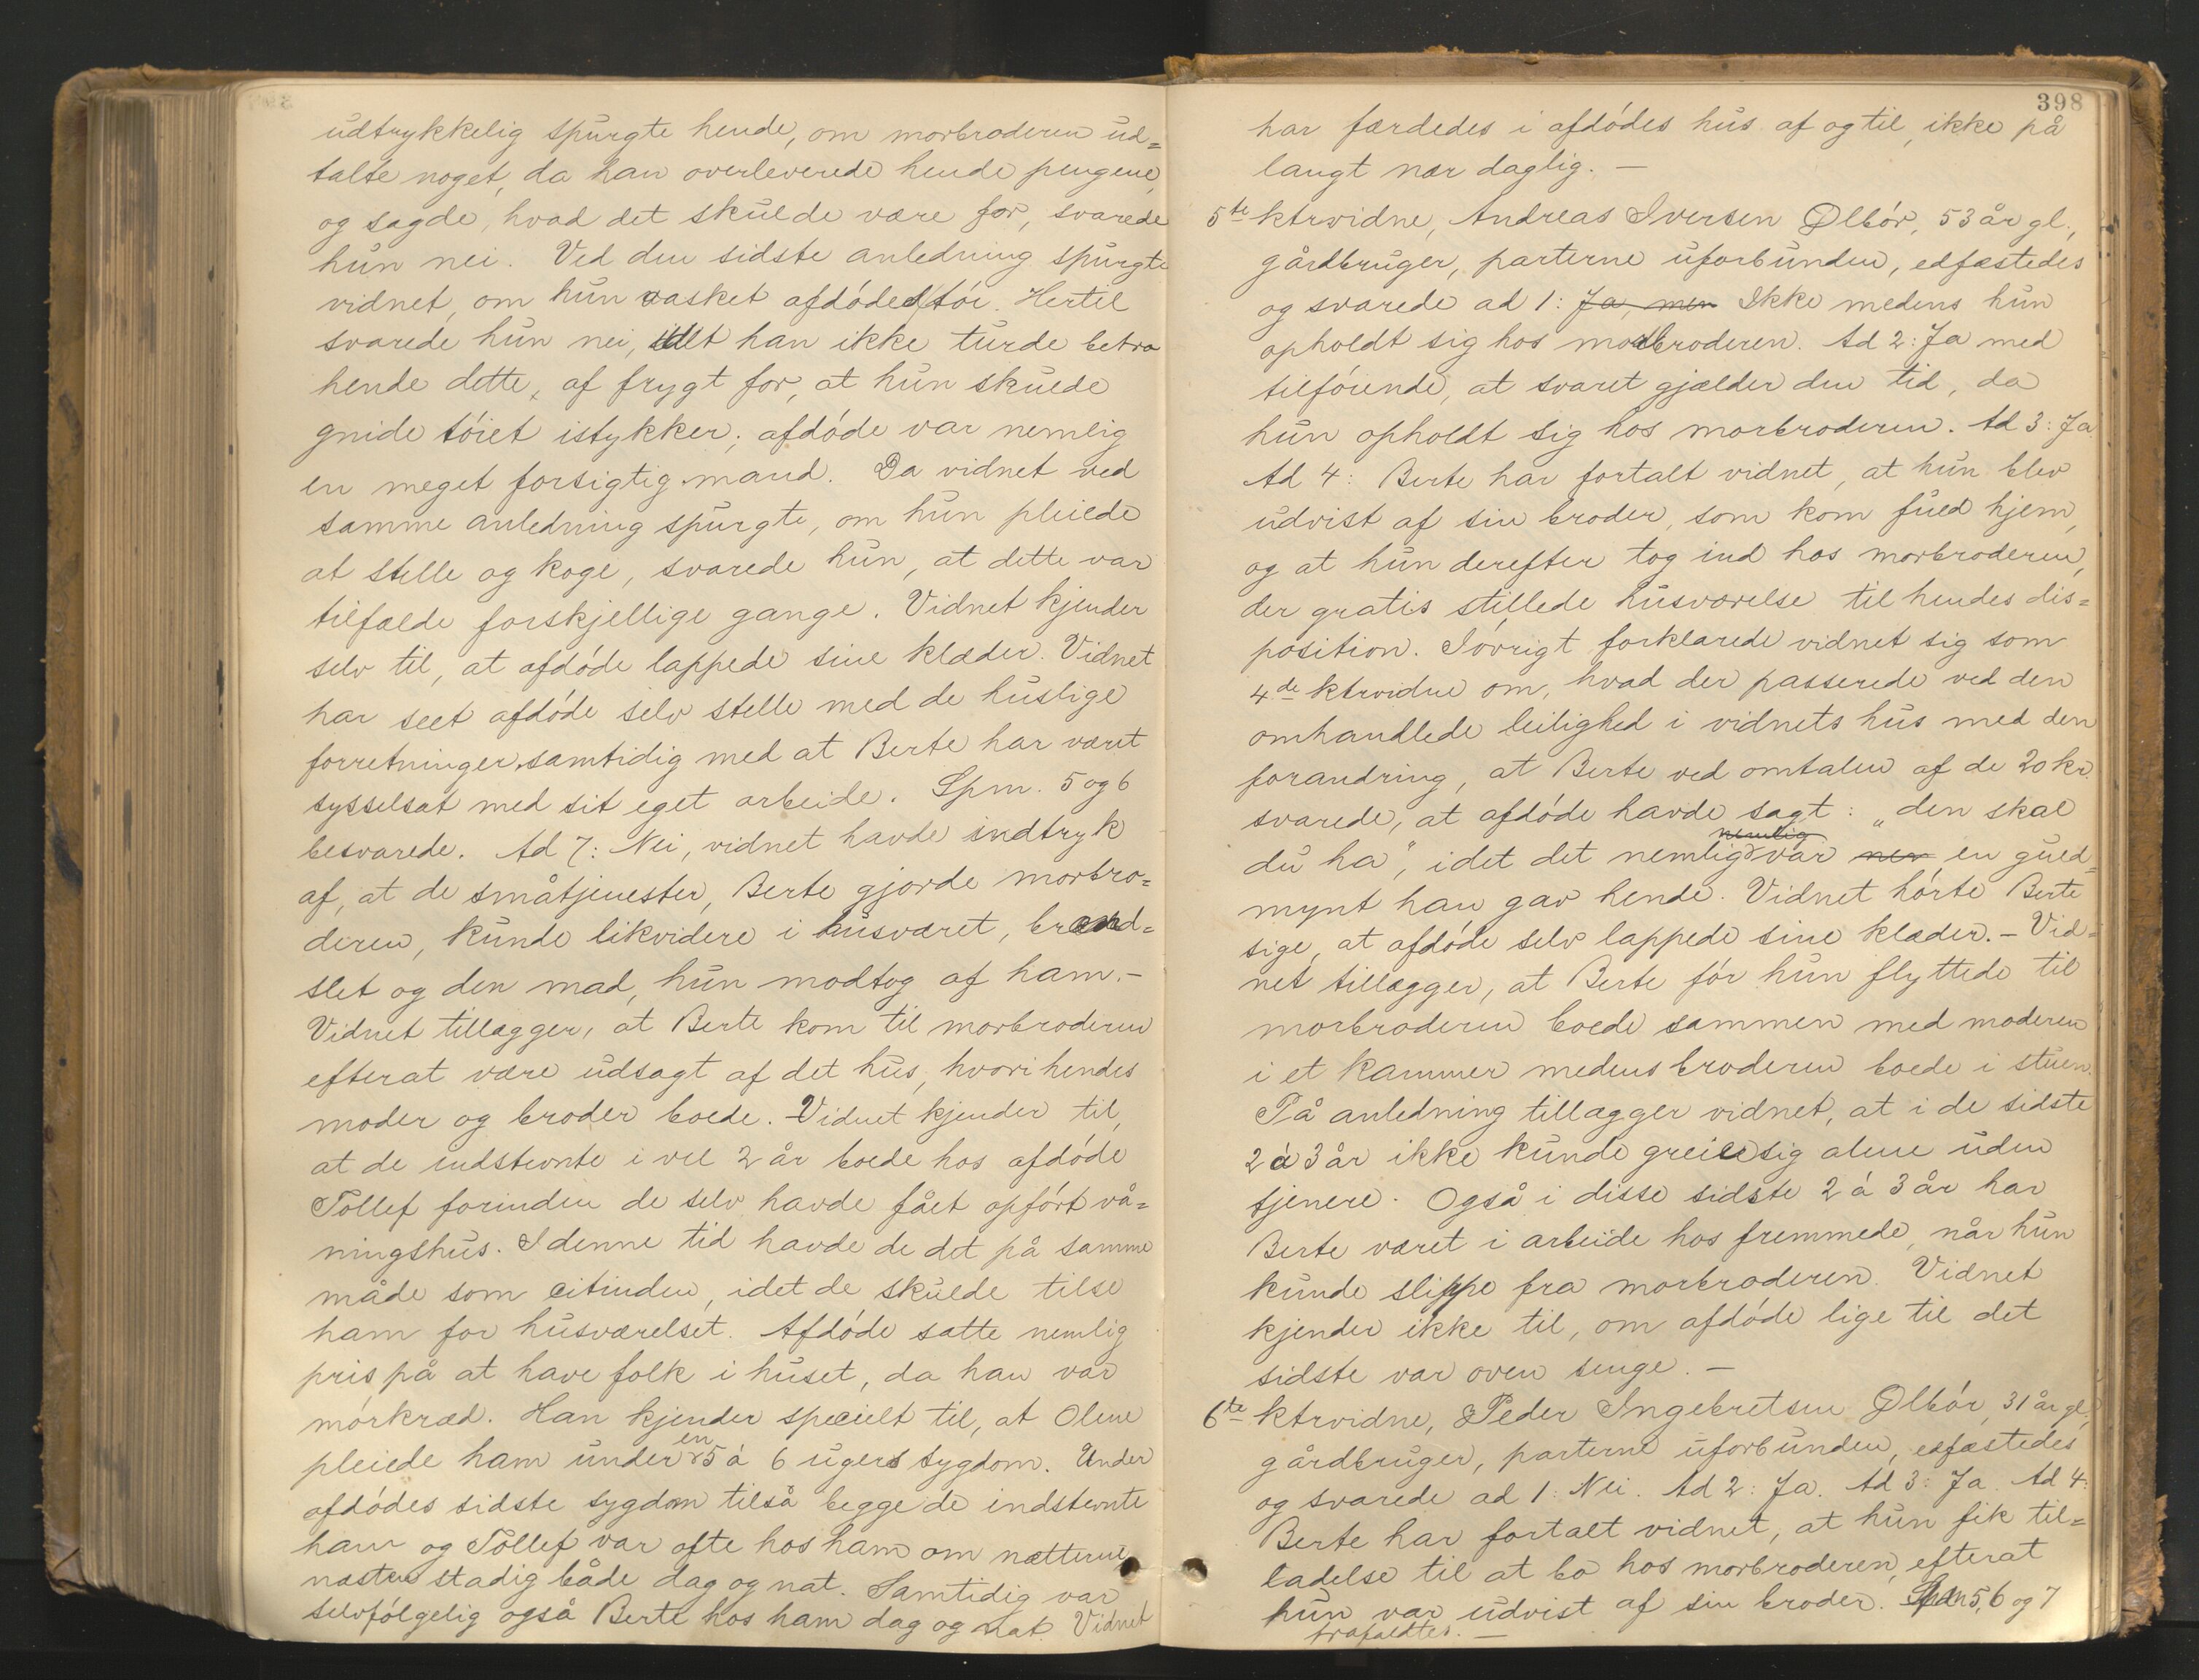 udtrykkelig spurgte hende, om morbroderen ud=
talte noget, da han overleverede hende pengene,
og sagde, hvad det skulde være for, svarede
hun nei. Ved den sidste anledning spurgte
vidnet, om hun vasket afdødes tøi. Hertil
svarede hun nei, idet han ikke turde betro
hende dette, af frygt for, at hun skulde
gnide tøiet istykker; afdøde var nemlig
en meget forsigtig mand. Da vidnet ved
samme anledning spurgte, om hun pleiede
at stelle og koge, svarede hun, at dette var
tilfælde forskjellige gange. Vidnet kjender
selv til, at afdøde lappede sine klæder. Vidnet
har seet afdøde selv stelle med de huslige
forretninger samtidig med at Berte har været
sysselsat med sit eget arbeide. Spm. 5 og 6
besvarede. Ad 7: Nei, vidnet havde indtryk
af, at de småtjenester, Berte gjorde morbro=
deren, kunde likvidere i husværet, brænd=
slet og den mad, hun modtog af ham.-
Vidnet tillægger, at Berte kom til morbroderen
efterat være udsagt af det hus, hvori hendes
moder og broder boede. Vidnet kjender til,
at de indstevnte i vel 2 år boede hos afdøde
Tollef forinden de selv havde fået opført vå=
ningshus. I denne tid havde de det på samme
måde som citinden, idet de skulde tilse
ham for husværelset. Afdøde satte nemlig
pris på at have folk i huset, da han var
mørkræd. Han kjender specielt til, at Olene
pleiede ham under en 5 à 6 ugers sygdom. Under
afdødes sidste sygdom tilså begge de indstevnte
ham og Tollef var ofte hos ham om nætterne
næsten stadig både dag og nat. Samtidig var
selvfølgelig også Berte hos ham dag og nat. Vidnet
398
har færdedes i afdødes hus af og til, ikke på
langt nær daglig. -
5te ktrvidne, Andreas Iversen Ølbør, 53 år gl.,
gårdbruger, parterne uforbunden, edfæstedes
og svarede ad 1: Ja, men Ikke medens hun
opholdt sig hos morbroderen. Ad 2: Ja med
tilføiende, at svaret gjælder den tid, da
hun opholdt sig hos morbroderen. Ad 3: Ja.
Ad 4: Berte har fortalt vidnet, at hun blev
udvist af sin broder, som kom fuld hjem,
og at hun derefter tog ind hos morbroderen,
der gratis stillede husværelse til hendes dis=
position. Iøvrigt forklarede vidnet sig som
4de ktrvidne om, hvad der passerede ved den
omhandlede leilighed i vidnets hus med den
forandring, at Berte ved omtalen af de 20 kr.
svarede, at afdøde havde sagt: "den skal
nemlig
du ha", idet det nemlig var en guld=
mynt han gav hende. Vidnet hørte Berte
sige, at afdøde selv lappede sine klæder. - Vid=
net tillægger, at Berte før hun flyttede til
morbroderen boede sammen med moderen
i et kammer medens broderen boede i stuen.
På anledning tillægger vidnet, at i de sidste
2 à 3 år ikke kunde greie sig alene uden
tjenere. Også i disse sidste 2 à 3 år har
Berte været i arbeide hos fremmede, når hun
kunde slippe fra morbroderen. Vidnet
kjender ikke til, om afdøde lige til det
sidste var oven senge. -
6te ktrvidne, Peder Ingebretsen Ølbør, 31 år gl.,
gårdbruger, parterne uforbunden, edfæstedes
og svarede ad 1: Nei. Ad 2: Ja. Ad 3: Ja. Ad 4:
Berte har fortalt vidnet, at hun fik til=
ladelse til at bo hos morbroderen, efterat
hun var udvist af sin broder. Spm 5, 6 og 7
frafaldtes. -